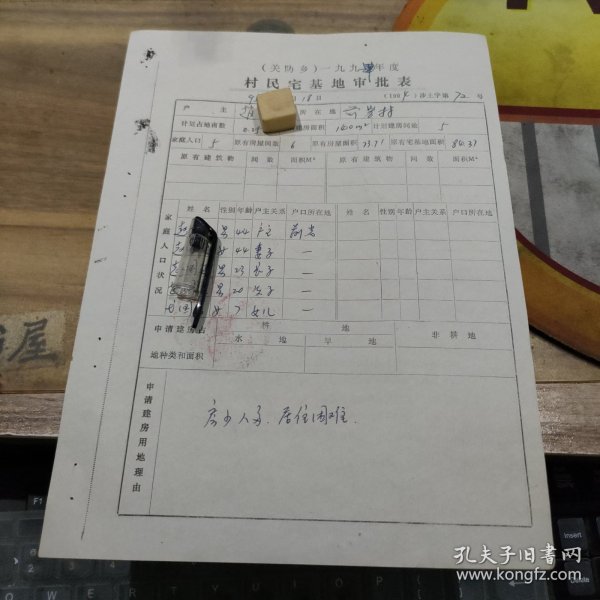 (关防乡)一九九 年度
村民宅基地审批表
9 月18日 (199 )涉土字第72号
户主 赵 所在地 前岩村
计划占地亩数 0.25 建房面积 160m² 计划建房间数 5
家庭人口 5 原有房屋间数 6 原有房屋面积 73.71 原有宅基地面积 84.37
原有建筑物 间数 面积M² 原有建筑物 间数 面积M²
家庭人口状况
姓名 性别 年龄 户主关系 户口所在地 姓名 性别 年龄 户主关系 户口所在地
赵 男 44 户主 前岩
赵 女 44 妻子 一
赵 男 23 长子 一
男 20 次子 一
女 7 女儿 一
申请建房占 耕地 非耕地
水地 旱地
地种类和面积
申请建房用地理由
房少人多、居住困难.
书屋
F1
Insert
Delete
孔夫子旧书网
www.kongfz.com